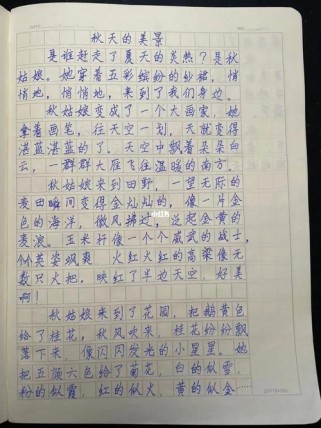 秋天的美景
是谁赶走了夏天的炎热？是秋
姑娘。她穿着五彩缤纷的纱裙，悄
悄地，悄悄地，来到了我们身边。
秋姑娘变成了一个大画家，她
拿着画笔，往天空一划，天就变得
湛蓝湛蓝的了。天空中飘着朵朵白
云，一群群大雁飞往温暖的南方。
秋姑娘来到田野，一望无际的
麦田瞬间变得金灿灿的，像一片金
色的海洋，微风拂过，泛起金黄的
麦浪。玉米杆像一个个威武的战士，
个个英姿飒爽，火红火红的高粱像无
数只火把，映红了半边天空，好美
啊！
秋姑娘来到了花园，把鹅黄色
给了桂花，秋风吹来，桂花纷纷飘
落下来，像闪闪发光的小星星。她
把五颜六色给了菊花，白的似雪，
粉的似霞，红的似火，黄的似金……
小红书